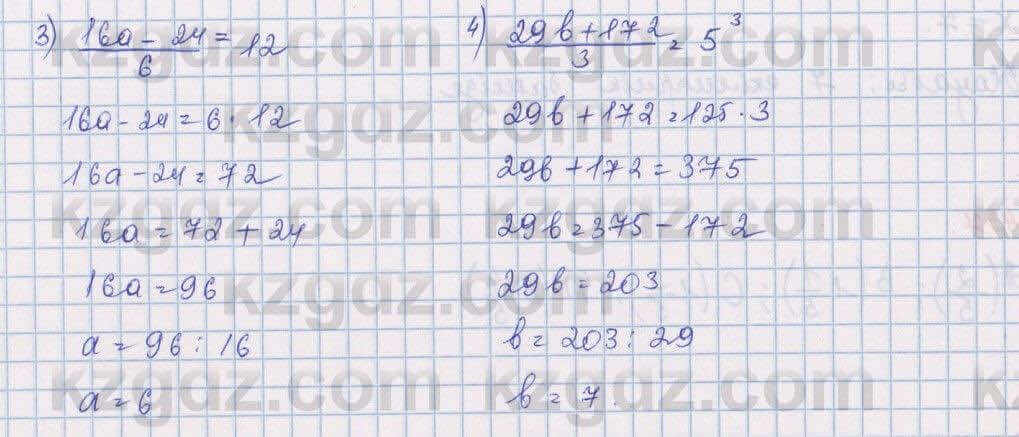 3) (16a - 24)/6 = 12
16a - 24 = 6 · 12
16a - 24 = 72
16a = 72 + 24
16a = 96
a = 96 : 16
a = 6
4) (29b + 172)/3 = 5³
29b + 172 = 125 · 3
29b + 172 = 375
29b = 375 - 172
29b = 203
b = 203 : 29
b = 7
kzgdz.com
kzgdz.com
kzgdz.com
kzgdz.com
kzgdz.com